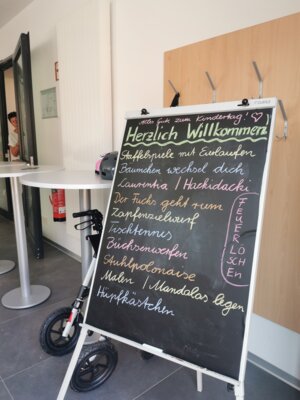 Alles Gute zum Kindertag! ♡
Herzlich Willkommen
Staffelspiele mit Eierlaufen
Bäumchen wechsel dich
Laurentia / Hackidacki
Der Fuchs geht rum
Zapfenzielwurf
Tischtennis
Büchsenwerfen
Stuhlpolonaise
Malen / Mandalas legen
Hüpfkästchen
FEUERLÖSCHEN